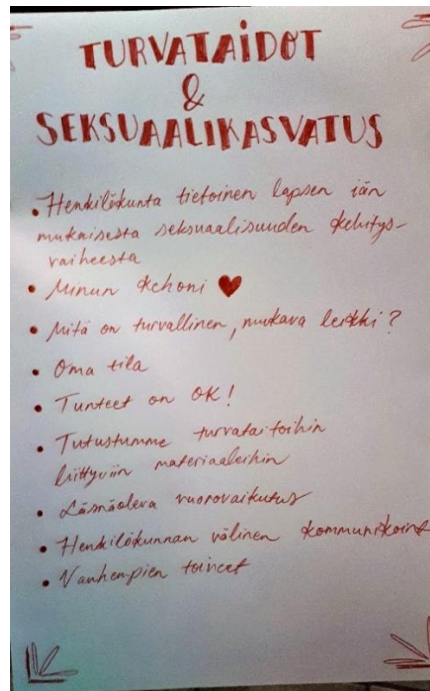 TURVATAIDOT
&
SEKSUAALIKASVATUS
• Henkilökunta tietoinen lapsen iän
mukaisesta seksuaalisuuden kehitys-
vaiheesta
• Minun kehoni ♥
• Mitä on turvallinen, mukava leikki?
• Oma tila
• Tunteet on OK!
• Tutustumme turvataitoihin
liittyviin materiaaleihin
• Läsnäoleva vuorovaikutus
• Henkilökunnan välinen kommunikoint
• Vanhempien toiveet